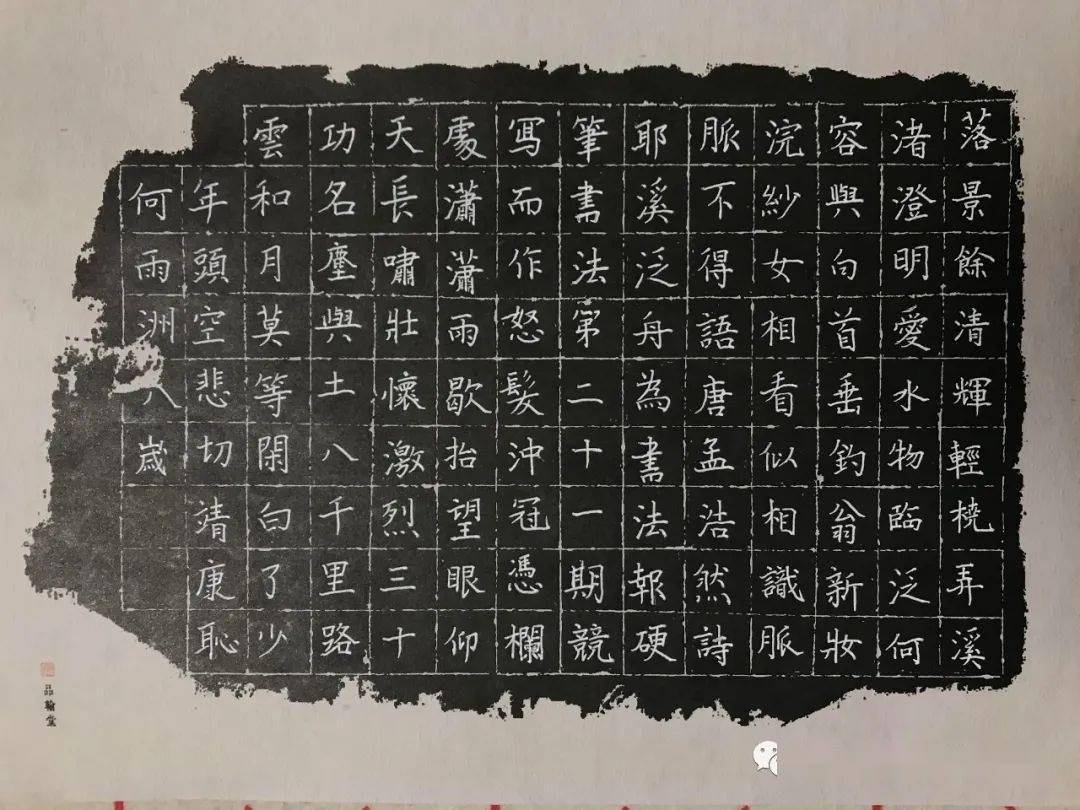 落景餘清輝輕橈弄溪
渚澄明愛水物臨泛何
容與白首垂釣翁新妝
浣紗女相看似相識脈
脈不得語唐孟浩然詩
耶溪泛舟為書法報硬
筆書法第二十一期競
寫而作怒髮沖冠憑欄
處瀟瀟雨歇抬望眼仰
天長嘯壯懷激烈三十
功名塵與土八千里路
雲和月莫等閑白了少
年頭空悲切靖康恥
何雨洲八歲
品翰堂